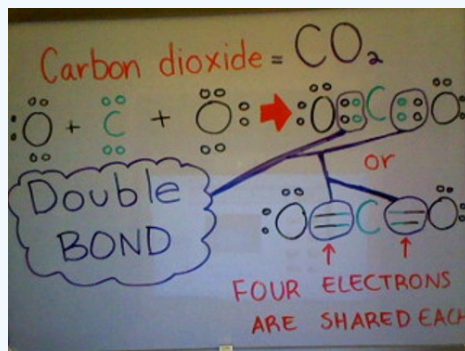 Carbon dioxide = CO₂
O + C + O → O C O
or
Double
BOND
O = C = O
FOUR ELECTRONS
ARE SHARED EACH